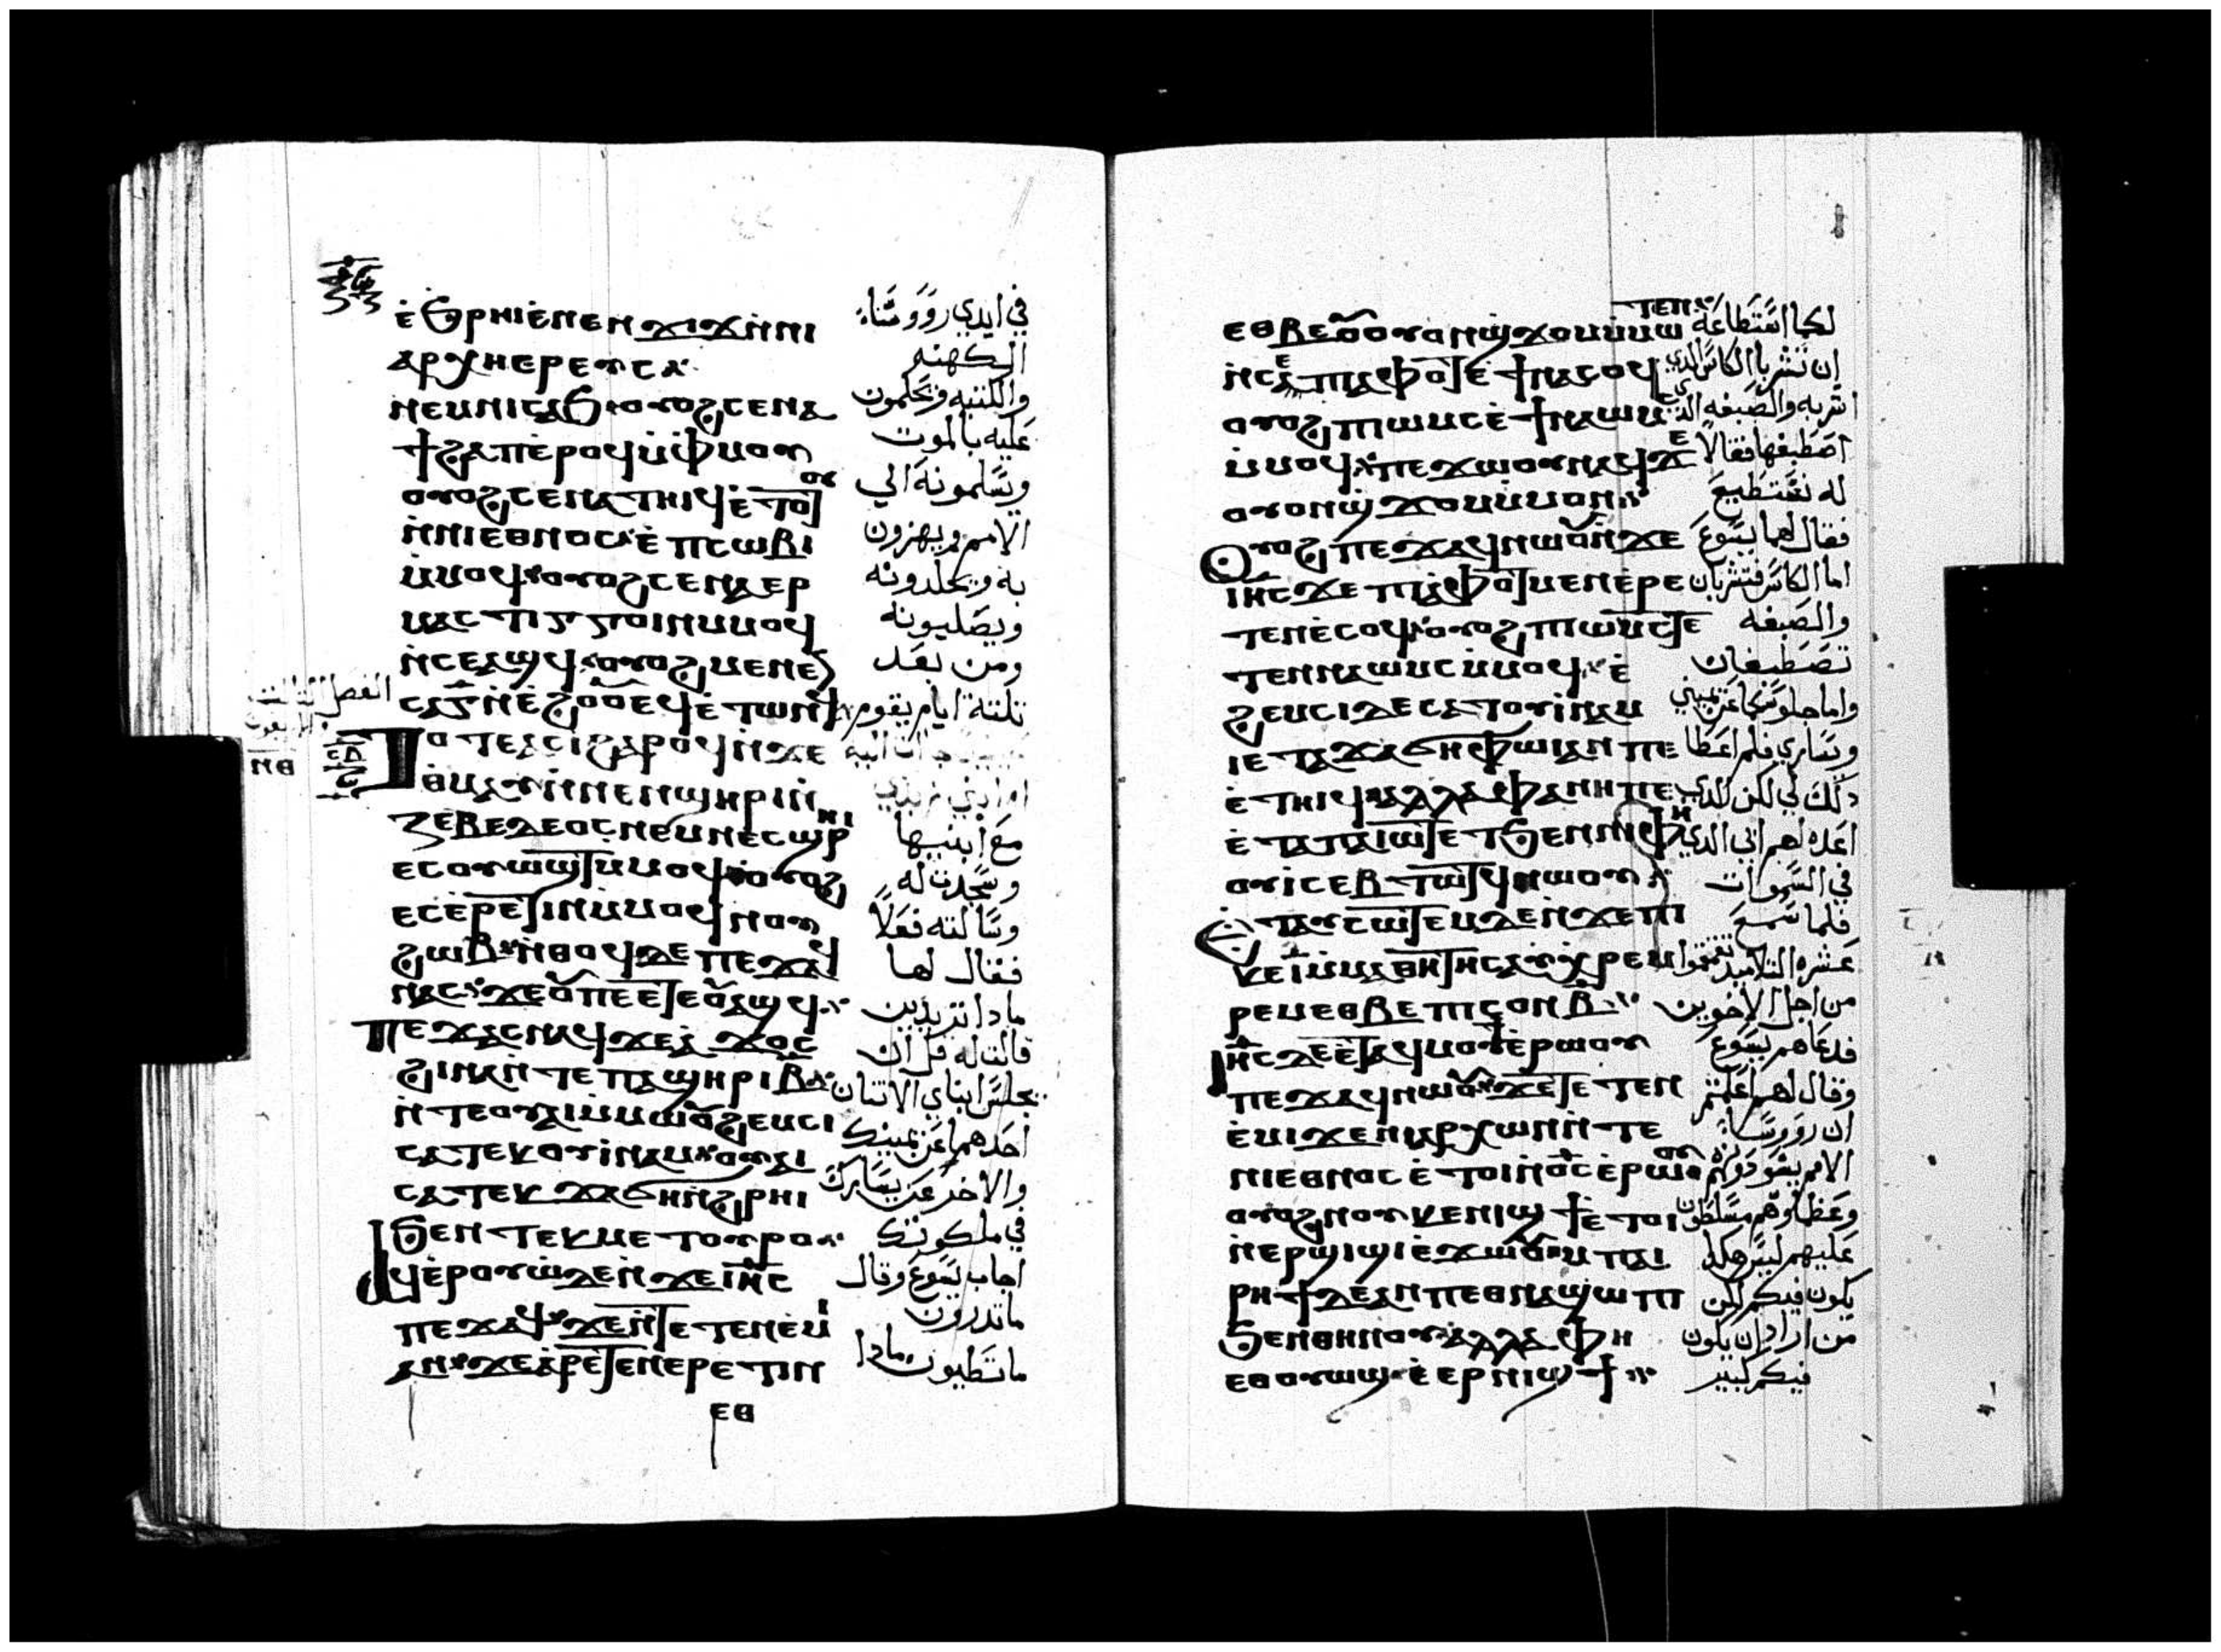 ⲉ̇ϧⲣⲏⲓ ⲉ̇ⲛⲉⲛϫⲓϫ ⲛ̇ⲛⲓ
ⲁⲣⲭⲏⲉⲣⲉⲩⲥ
ⲛⲉⲙⲛⲓⲥⲁϧ ⲟⲩⲟϩ ⲥⲉⲛⲁ
ϯϩⲁⲡ ⲉ̇ⲣⲟϥ ⲙ̇ⲫⲙⲟⲩ
ⲟⲩⲟϩ ⲥⲉⲛⲁⲧⲏⲓϥ ⲉ̇ⲧⲟⲧⲟⲩ
ⲛ̇ⲛⲓⲉⲑⲛⲟⲥ ⲉ̇ⲡⲥⲱⲃⲓ
ⲙ̇ⲙⲟϥ ⲟⲩⲟϩ ⲥⲉⲛⲁⲉⲣ
ⲙⲁⲥⲧⲓⲅⲅⲟⲓⲛ ⲙⲙⲟϥ
ⲛ̇ⲥⲉⲁϣϥ ⲟⲩⲟϩ ⲙⲉⲛⲉ
ⲥⲁ ⲅ̅ ⲛ̇ⲉ̇ϩⲟⲟⲩ ⲉϥⲉ̇ⲧⲱⲛϥ
ⲧⲟⲧⲉ ⲁⲥⲓ ϩⲁⲣⲟϥ ⲛ̇ϫⲉ
ⲑⲙⲁⲩ ⲛ̇ⲛⲉⲛϣⲏⲣⲓ ⲛ̇
ⲍⲉⲃⲉⲇⲉⲟⲥ ⲛⲉⲙ ⲛⲉⲥϣⲏⲣⲓ
ⲉⲥⲟⲩⲱϣⲧ ⲙ̇ⲙⲟϥ ⲟⲩⲟϩ
ⲉⲥⲉ̇ⲣⲉⲧⲓⲛ ⲙ̇ⲙⲟϥ ⲛⲟⲩ
ϩⲱⲃ ⲛ̇ⲑⲟϥ ⲇⲉ ⲡⲉϫⲁϥ
ⲛⲁⲥ ϫⲉ ⲟⲩ ⲡⲉⲧⲉⲟⲩⲁϣϥ
ⲡⲉϫⲁⲥ ⲛⲁϥ ϫⲉ ⲁ̇ϫⲟⲥ
ϩⲓⲛⲁ ⲛ̇ⲧⲉ ⲡⲁϣⲏⲣⲓ ⲃ̅
ⲛ̇ⲧⲉ ⲟⲩⲁⲓ ⲙ̇ⲙⲱⲟⲩ ϩⲉⲙⲥⲓ
ⲥⲁⲧⲉⲕⲟⲩⲓ̇ⲛⲁⲙ ⲟⲩⲁⲓ
ⲥⲁⲧⲉⲕϫⲁϭⲏ ⲛ̇ϩⲣⲏⲓ
ϧⲉⲛ ⲧⲉⲕⲙⲉⲧⲟⲩⲣⲟ
ⲁϥⲉ̇ⲣⲟⲩⲱ ⲇⲉ ⲛ̇ϫⲉ ⲓⲏⲥ
ⲡⲉϫⲁϥ ϫⲉ ⲛ̇ⲧⲉⲧⲉⲛⲉ̇ⲙⲓ
ⲁⲛ ϫⲉ ⲁ̇ⲣⲉⲧⲉⲛⲉⲣⲉⲧⲓⲛ
ⲉⲑ
في ايدي رووساء
الكهنه
والكتبه ويحكمون
عليه بالموت
ويسلمونه الي
الامم ويهزون
به ويجلدونه
ويصلبونه
ومن بعد
تلتة ايام يقوم
الفصل الثالث
ⲛⲑ
مع ابنيها
وسجدت له
وسالته فعلاً
فقال لها
مادا تريدين
قالت له قل ان
يجلس ابناي الاتنان
احدهما عن يمينك
والاخر عن يسارك
في ملكوتك
اجاب يسوع وقال
ماتدرون
ماتطلبون مادا
ⲉⲑⲃⲉ ⲟⲩ ⲟⲩⲟⲛϣϫⲟⲙ ⲙ̇ⲙⲱⲧⲉⲛ
ⲛ̇ⲥⲉ ⲡⲓⲁ̇ⲫⲟⲧ ⲉ̇ϯⲛⲁⲥⲟϥ
ⲟⲩⲟϩ ⲡⲓⲱⲙⲥ ⲉ̇ϯⲛⲁⲱⲙⲥ
ⲙ̇ⲙⲟϥ ⲡⲉϫⲱⲟⲩ ⲛⲁϥ ϫⲉ
ⲟⲩⲟⲛϣϫⲟⲙ ⲙ̇ⲙⲟⲛ
ⲟⲩⲟϩ ⲡⲉϫⲁϥ ⲛⲱⲟⲩ ⲛ̇ϫⲉ
ⲓⲏⲥ ϫⲉ ⲡⲓⲁ̇ⲫⲟⲧ ⲙⲉⲛ ⲉ̇ⲣⲉ
ⲧⲉⲛⲉ̇ⲥⲟϥ ⲟⲩⲟϩ ⲡⲓⲱⲙⲥ ⲧⲉ
ⲧⲉⲛⲛⲁⲱⲙⲥ ⲙ̇ⲙⲟϥ ⲉ̇
ϩⲉⲙⲥⲓ ⲇⲉ ⲥⲁⲧⲟⲩⲓ̇ⲛⲁⲙ
ⲓⲉ ⲧⲁϫⲁϭⲏ ⲫⲱⲓ ⲁⲛ ⲡⲉ
ⲉ̇ⲧⲏⲓϥ ⲁⲗⲗⲁ ⲫⲁⲛⲏ ⲡⲉ
ⲉ̇ⲧⲁⲡⲁⲓⲱⲧ ⲉⲧϧⲉⲛ ⲛⲓⲫⲏ
ⲟⲩⲓ̇ ⲥⲉⲃⲧⲱⲧϥ ⲛⲱⲟⲩ
ⲉ̇ⲧⲁⲩⲥⲱⲧⲉⲙ ⲇⲉ ⲛ̇ϫⲉ ⲡⲓ
ⲕⲉ ⲓ̅ ⲙ̇ⲙⲁⲑⲏⲧⲏⲥ ⲁⲩⲭⲣⲉⲙ
ⲣⲉⲙ ⲉⲑⲃⲉ ⲡⲓⲥⲟⲛ ⲃ̅
ⲓⲏⲥ ⲇⲉ ⲉⲧⲁϥⲙⲟⲩϯ ⲉ̇ⲣⲱⲟⲩ
ⲡⲉϫⲁϥ ⲛⲱⲟⲩ ϫⲉ ⲧⲉⲧⲉⲛ
ⲉ̇ⲙⲓ ϫⲉ ⲛⲓⲁⲣⲭⲱⲛ ⲛ̇ⲧⲉ
ⲛⲓⲉⲑⲛⲟⲥ ⲉ̇ⲧⲟⲓ ⲛ̇ⲟⲥ ⲉ̇ⲣⲱⲟⲩ
ⲟⲩⲟϩ ⲛⲟⲩⲕⲉⲛⲓϣϯ ⲉ̇ⲧⲟⲓ
ⲛ̇ⲉⲣϣⲓϣⲓ ⲉ̇ϫⲱⲟⲩ ⲙⲡⲁⲓ
ⲣⲏϯ ⲇⲉ ⲁⲛ ⲡⲉⲑⲛⲁϣⲱⲡⲓ
ϧⲉⲛⲑⲏⲛⲟⲩ ⲁⲗⲗⲁ ⲫⲏ
ⲉⲑⲟⲩⲱϣ ⲉ̇ⲉⲣⲛⲓϣϯ
لكما استطاعة
ان تشربا الكاس الدي
اشربه والصبغه الدي
اصطبغها فقالا
له نستطيع
فقال لهما يسوع
اما الكاس فتشربان
والصبغه
تصطبغان
واما جلوسكما عن يميني
ويساري فلم اعطا
دلك لي لكن للدي
اعده لهم ابي الدي
في السموات
فلما سمع
عشره التلاميد تقمقموا
من اجل الاخوين
فدعاهم يسوع
وقال لهم اعلمتم
ان روساء
الامم يسودونهم
وعظماوهم مسلطون
عليهم ليس هكدا
يكون فيكم لكن
من اراد ان يكون
فيكم كبير